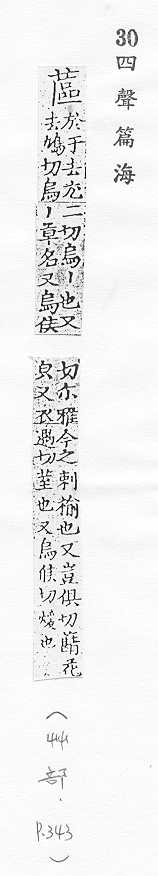 30 四聲篇海
蓲
於于去尤二切烏丨也又
去鳩切烏丨草名又烏侯
切尒雅今之刺榆也又豈俱切花
皃又衣遇切莖也又烏侯切煖也
（艸部.P.343）